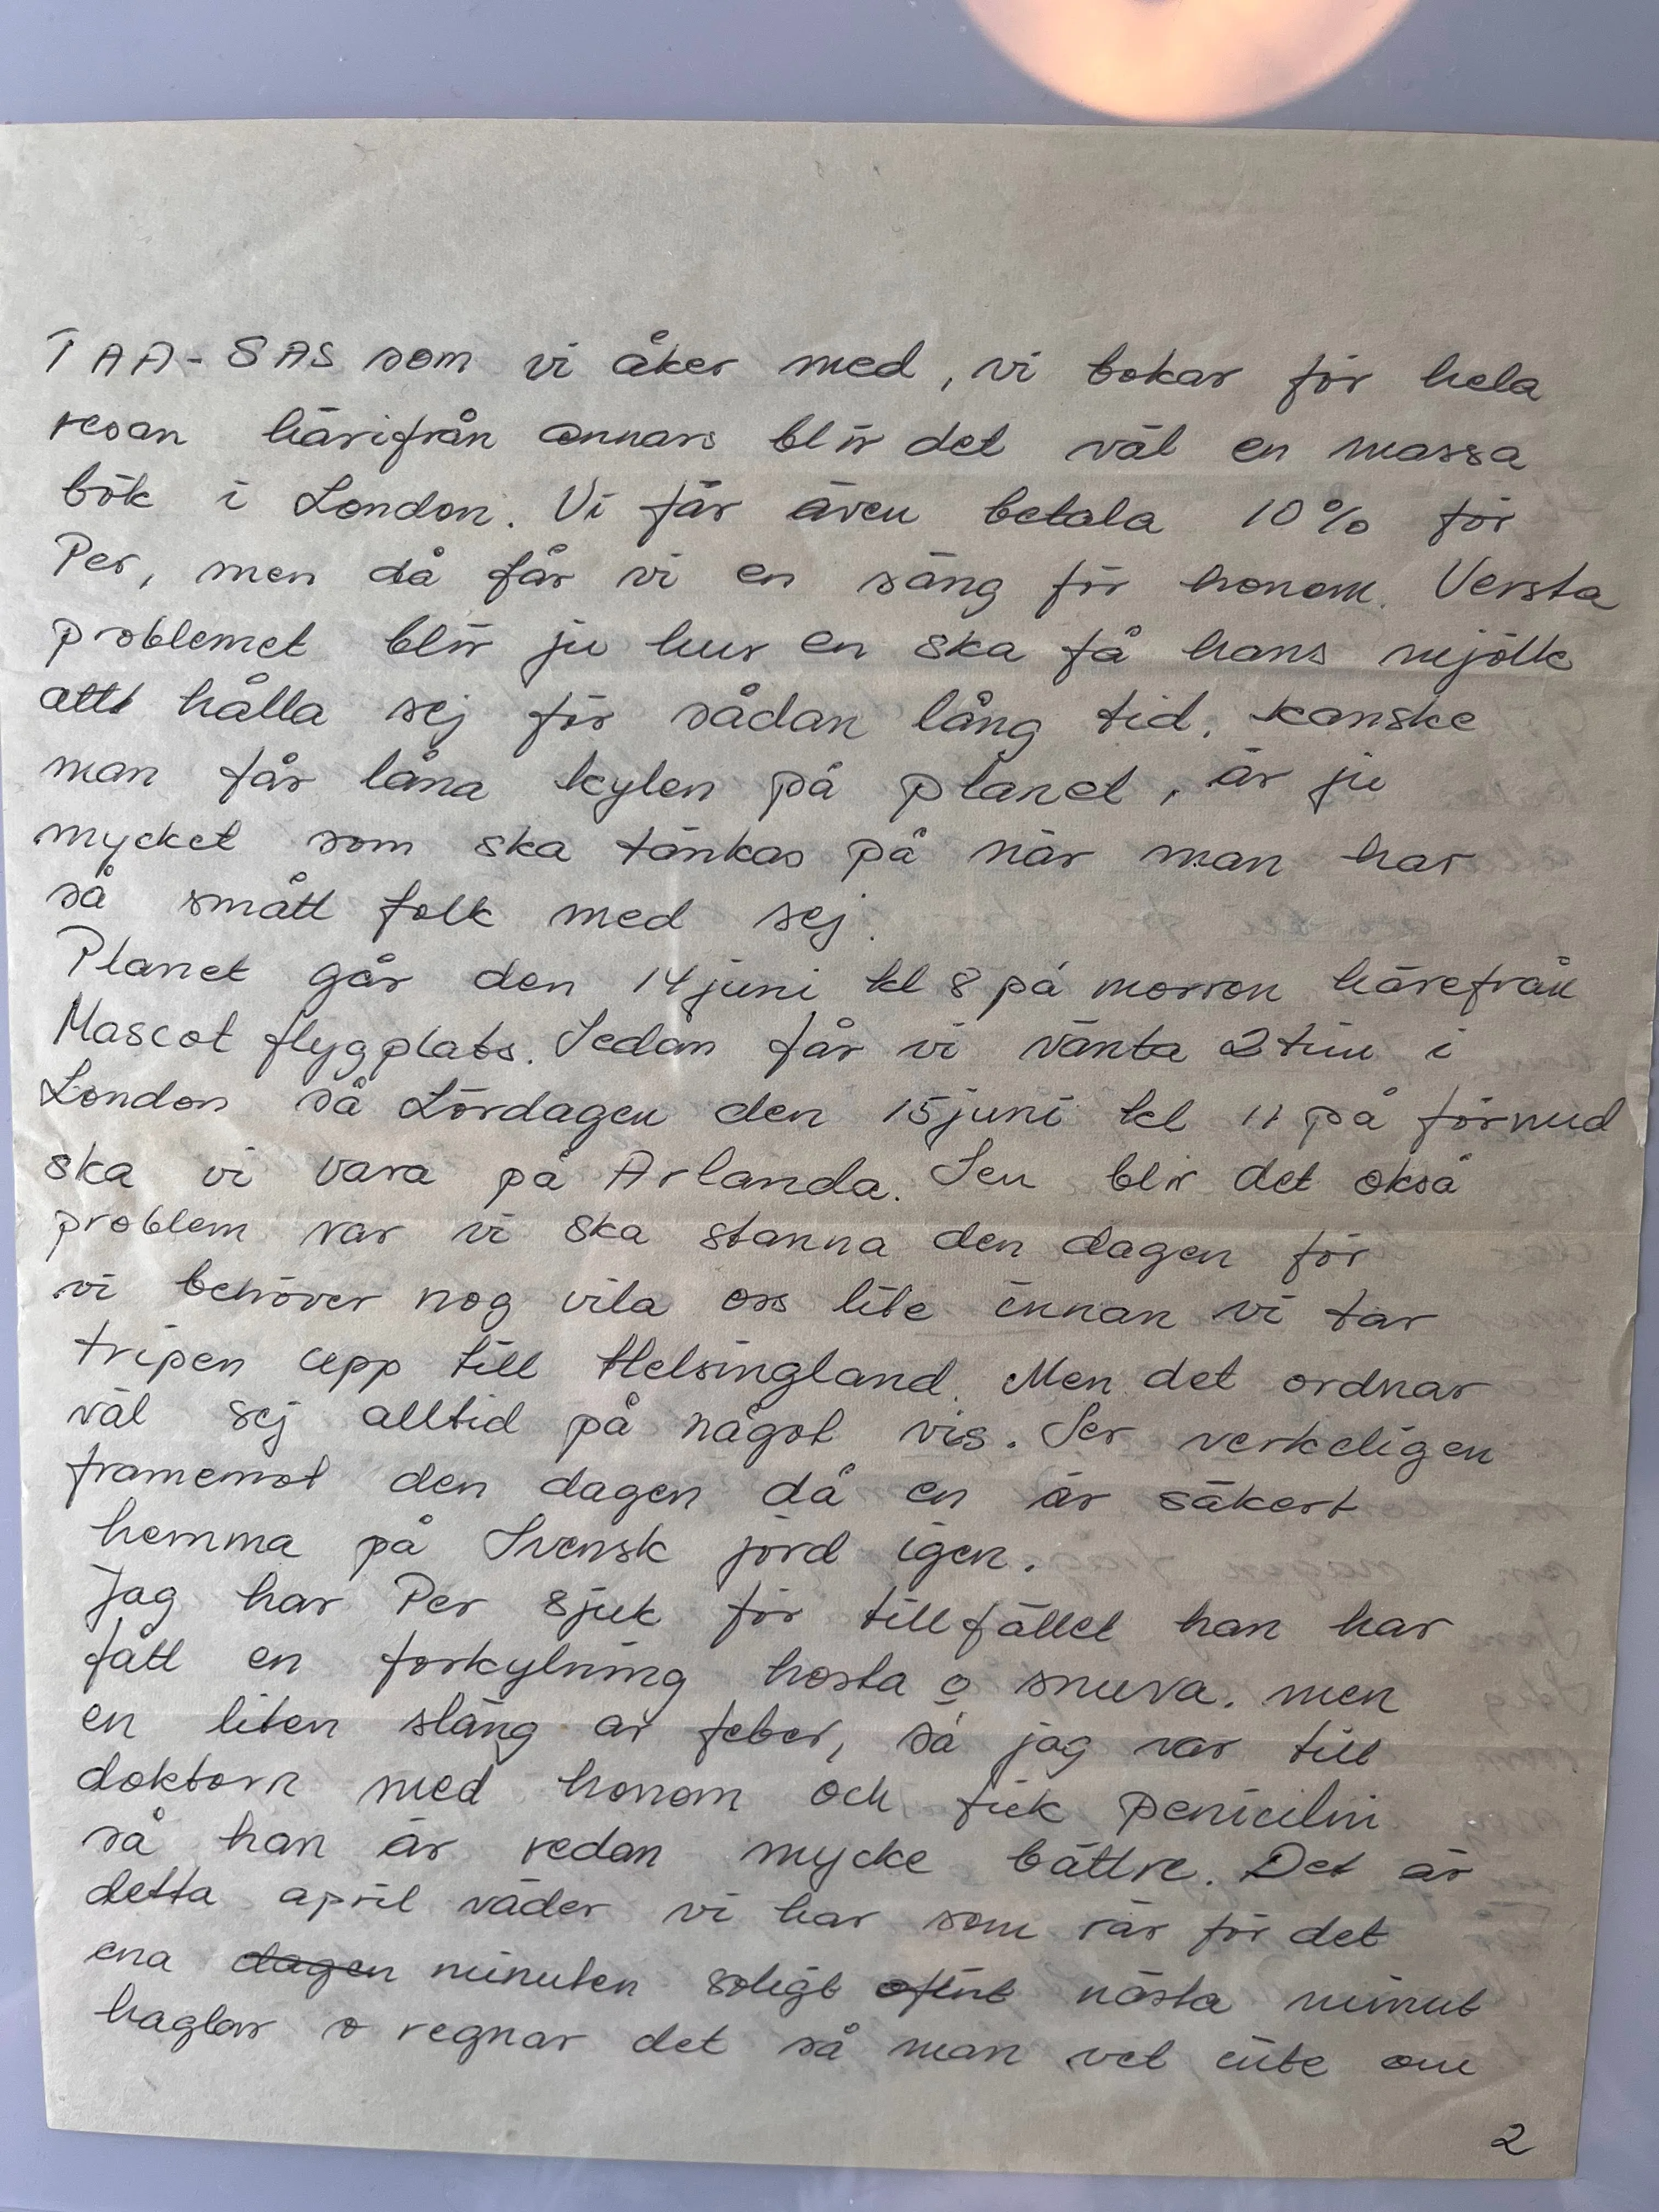 TAA-SAS som vi åker med, vi bokar för hela
resan härifrån annars blir det väl en massa
bök i London. Vi får även betala 10% för
Per, men då får vi en säng för honom. Versta
problemet blir ju hur en ska få hans mjölk
att hålla sej för sådan lång tid, kanske
man får låna kylen på planet, är ju
mycket som ska tänkas på när man har
så smått folk med sej.
Planet går den 14 juni kl 8 på morron härefrån
Mascot flygplats. Sedan får vi vänta 2 tim i
London så Lördagen den 15 juni kl 11 på förmid
ska vi vara på Arlanda. Sen blir det okså
problem var vi ska stanna den dagen för
vi behöver nog vila oss lite innan vi tar
tripen upp till Helsingland. Men det ordnar
väl sej alltid på något vis. Ser verkeligen
framemot den dagen då en är säkert
hemma på Svensk jörd igen.
Jag har Per sjuk för tillfället han har
fått en forkylning hosta o snuva. men
en liten släng av feber, så jag var till
doktorn med honom och fick penicilin
så han är redan mycke bättre. Det är
detta april väder vi har som rår för det
ena dagen minuten soligt nästa minut
haglar o regnar det så man vet inte om
2